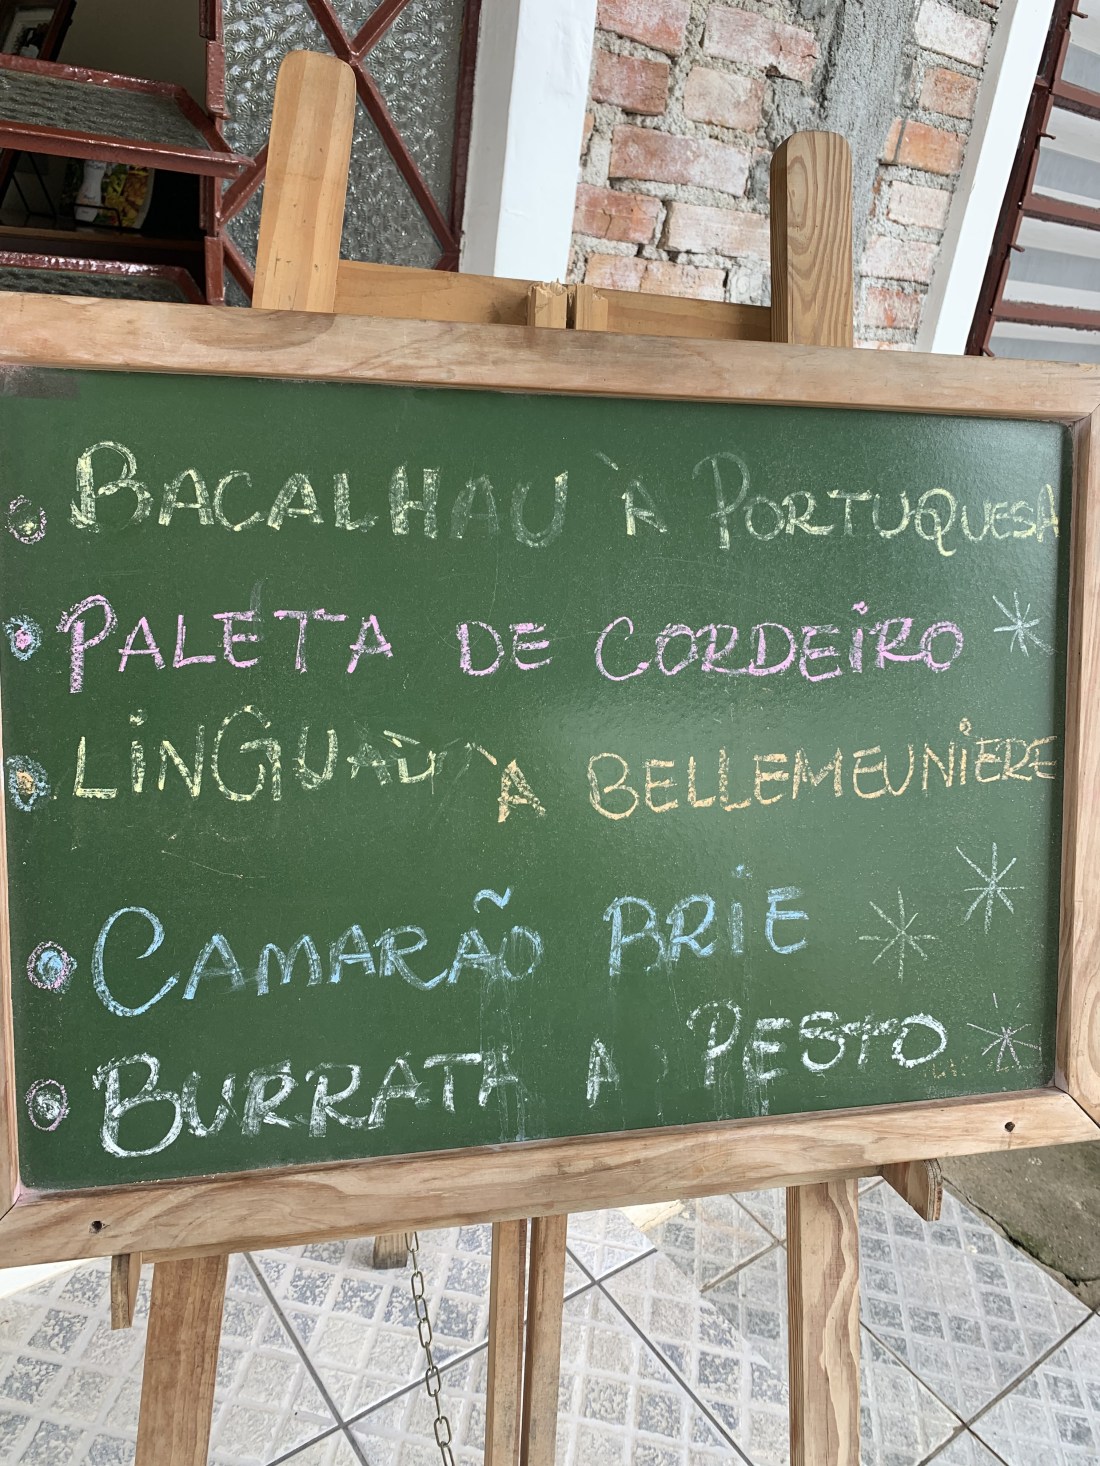 BACALHAU À PORTUQUESA
PALETA DE CORDEIRO
LINGUADO À BELLEMEUNIERE
CAMARÃO BRIE
BURRATA A PESTO